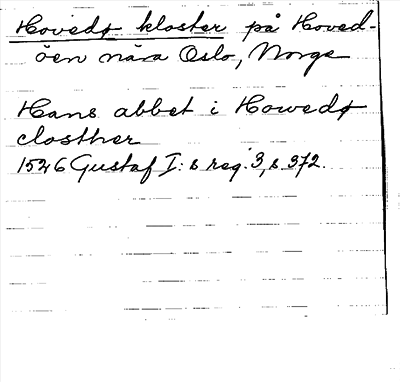 Hovedø kloster på Hoved-
öen nära Oslo, Norge
Hans abbet i Howedø
closther
1526 Gustaf I:s reg. 3, s. 372.